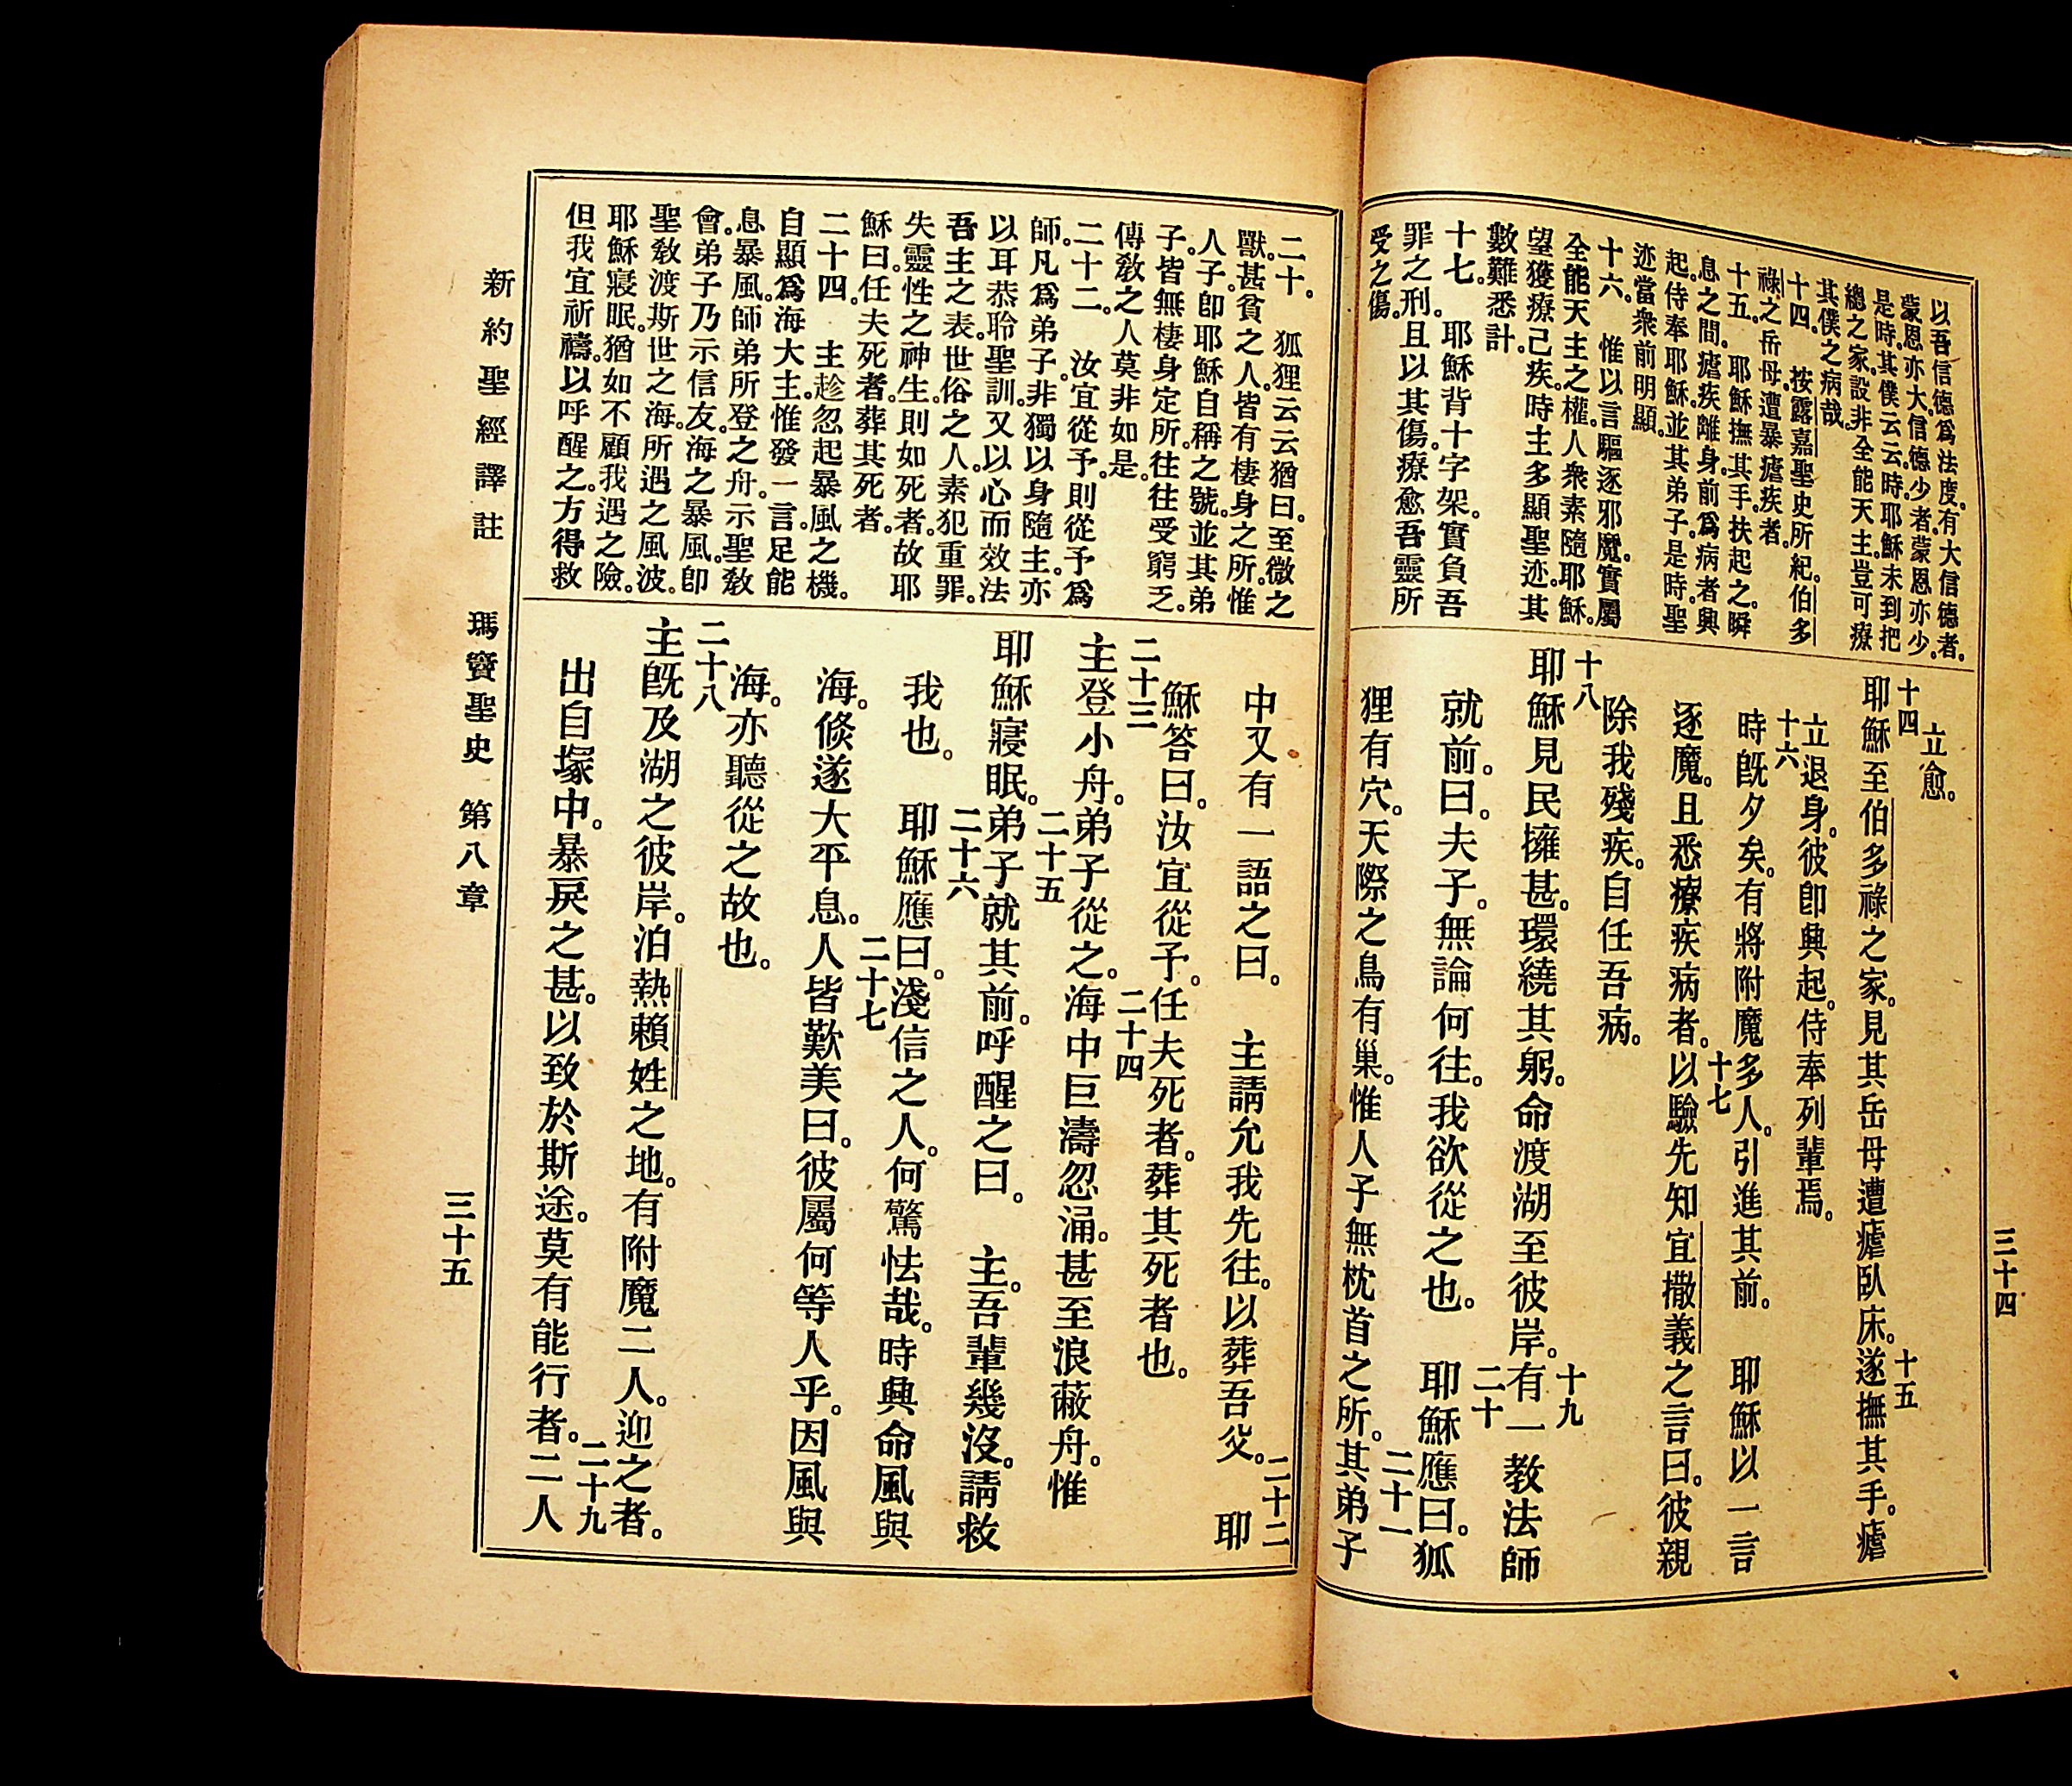 以吾信德爲法度。有大信德者。
蒙恩亦大。信德少者。蒙恩亦少。
是時。其僕云云。時耶穌未到把
總之家。設非全能天主。豈可療
其僕之病哉。
十四。 按露嘉聖史所紀。伯多
祿之岳母。遭暴瘧疾者。
十五。 耶穌撫其手。扶起之。瞬
息之間。瘧疾離身。前爲病者興
起。侍奉耶穌。並其弟子。是時。聖
迹當衆前明顯。
十六。 惟以言驅逐邪魔。實屬
全能天主之權。人衆素隨耶穌。
望獲療己疾。時主多顯聖迹。其
數難悉計。
十七。 耶穌背十字架。實負吾
罪之刑。且以其傷。療愈吾靈所
受之傷。
立愈。
十四
耶穌至伯多祿之家。見其岳母遭瘧臥床。十五遂撫其手。瘧
立退身。彼卽興起。侍奉列輩焉。
十六
時旣夕矣。有將附魔多人。引進其前。 耶穌以一言
逐魔。且悉療疾病者。十七以驗先知宜撒義之言曰。彼親
除我殘疾。自任吾病。
十八
耶穌見民擁甚。環繞其躬。命渡湖至彼岸。十九有一教法師
就前。曰。夫子。無論何往。我欲從之也。 二十耶穌應曰。狐
狸有穴。天際之鳥有巢。惟人子無枕首之所。二十一其弟子
三十四
二十。 狐狸云云。猶曰。至微之
獸。甚貧之人。皆有棲身之所。惟
人子。卽耶穌自稱之號。並其弟
子。皆無棲身定所。往往受窮乏。
傳教之人。莫非如是。
二十二。 汝宜從予。則從予爲
師。凡爲弟子。非獨以身隨主。亦
以耳恭聆聖訓。又以心而效法
吾主之表。世俗之人。素犯重罪。
失靈性之神生。則如死者。故耶
穌曰。任夫死者。葬其死者。
二十四。 主趁忽起暴風之機。
自顯爲海大主。惟發一言。足能
息暴風。師弟所登之舟。示聖教
會。弟子乃示信友。海之暴風。卽
聖教渡斯世之海。所遇之風波。
耶穌寢眠。猶如不顧我遇之險。
但我宜祈禱。以呼醒之。方得救
中又有一語之曰。 主請允我先往。以葬吾父。 二十二耶
穌答曰。汝宜從予。任夫死者。葬其死者也。
二十三
主登小舟。弟子從之。二十四海中巨濤忽涌。甚至浪蔽舟。惟
耶穌寢眠。二十五弟子就其前。呼醒之曰。 主。吾輩幾沒。請救
我也。 二十六耶穌應曰。淺信之人。何驚怯哉。時興命風與
海。倏遂大平息。二十七人皆歎美曰。彼屬何等人乎。因風與
海。亦聽從之故也。
二十八
主旣及湖之彼岸。泊熱賴姓之地。有附魔二人。迎之者。
出自塚中。暴戾之甚。以致於斯途。莫有能行者。二十九二人
新約聖經譯註 瑪竇聖史 第八章 三十五